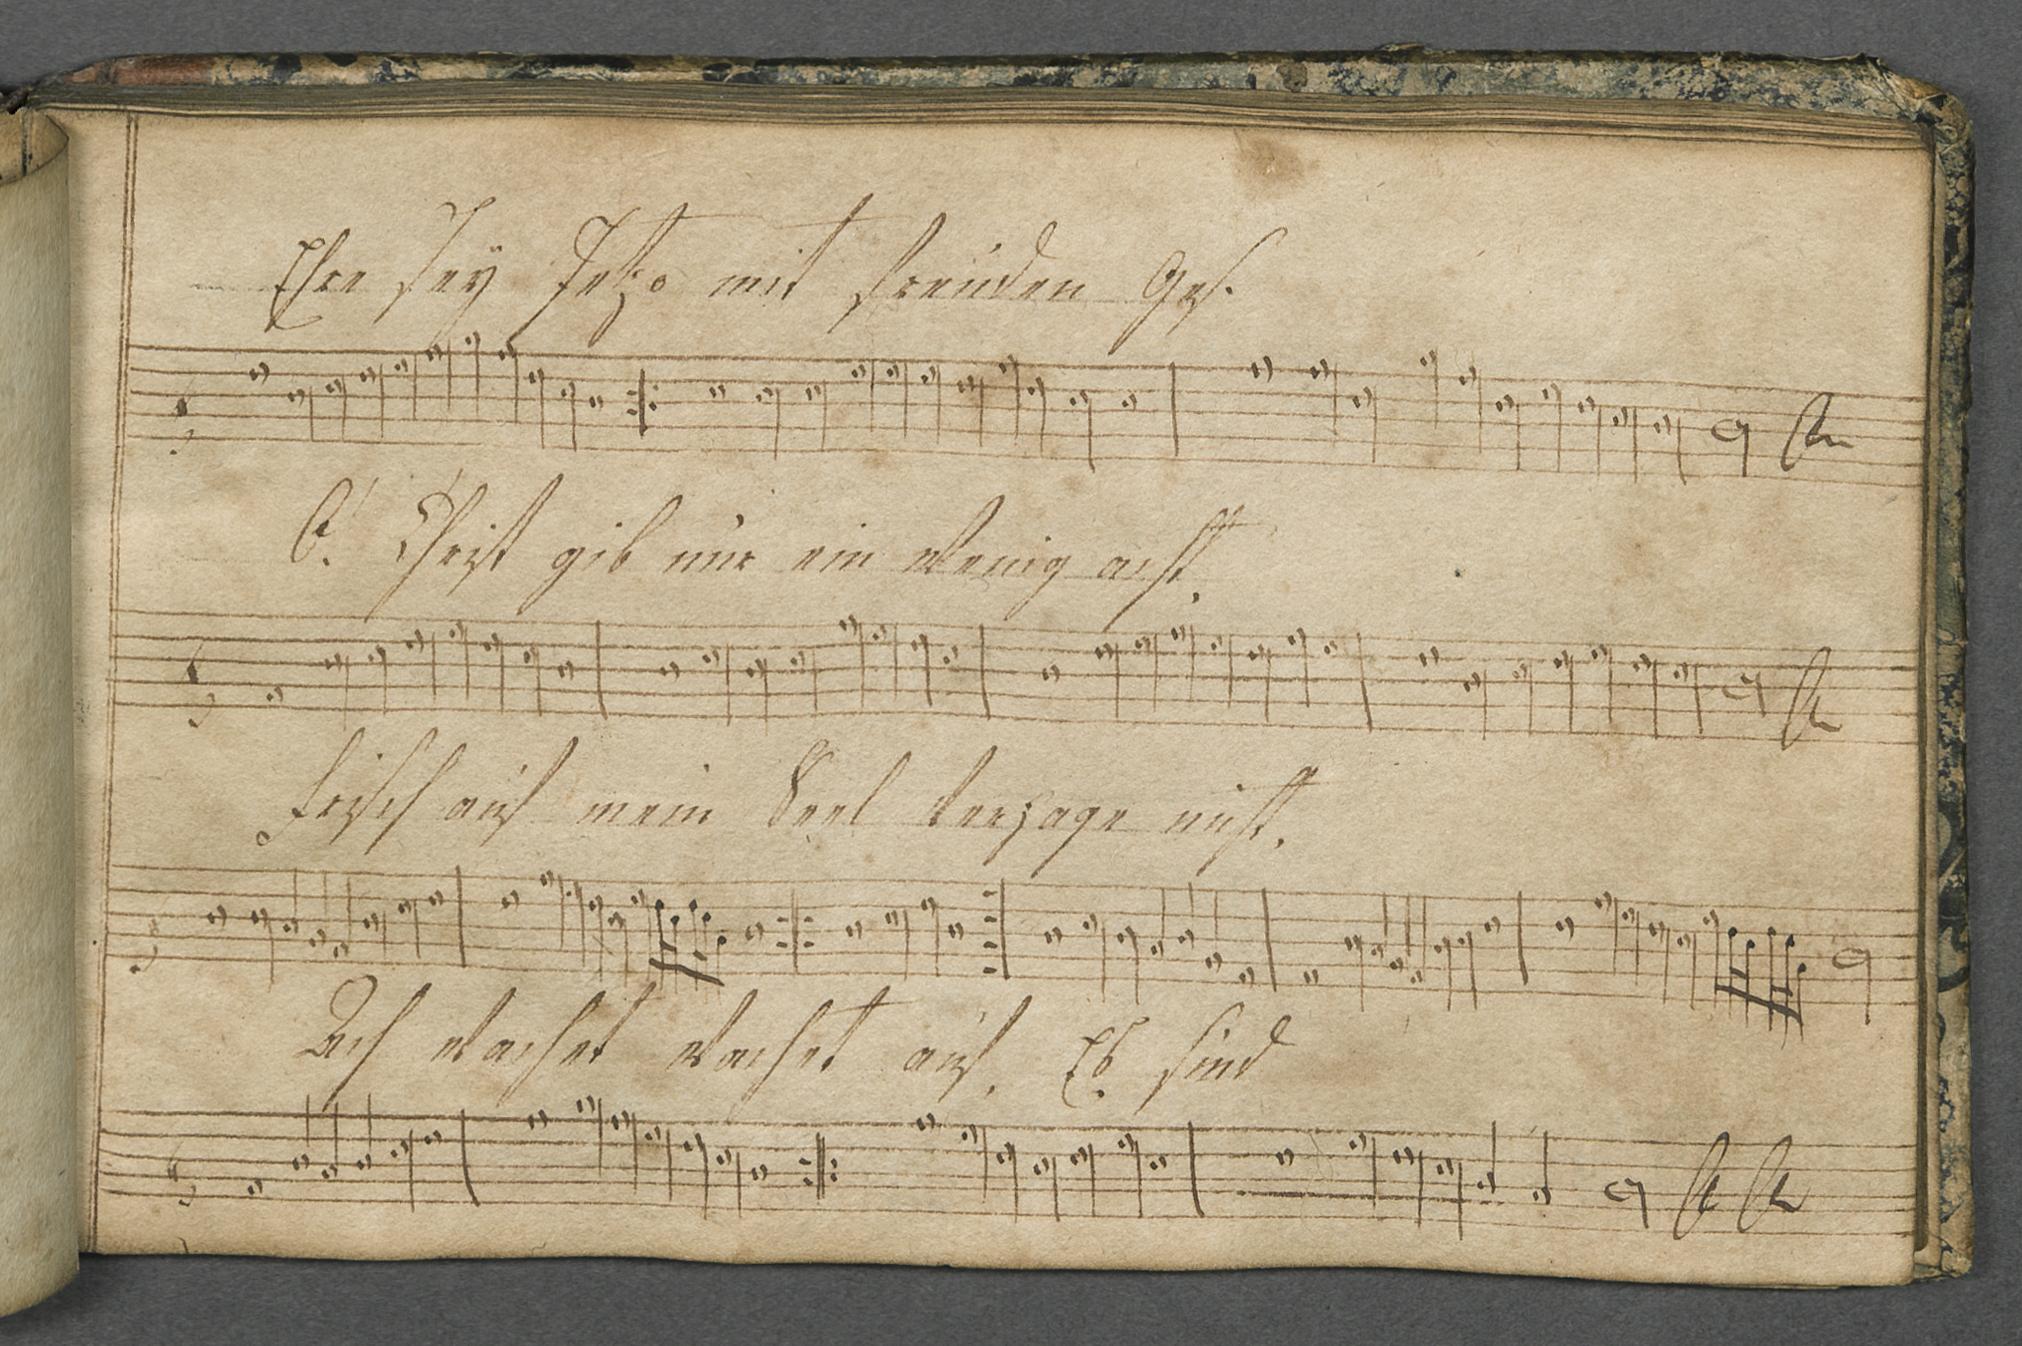 Ehre sey Jetzo mit freuden Ges.
O! Christ gib nur ein wenig acht,
Frisch auf mein Seel verzage nicht,
Ach wachet wachet auf, Es sind